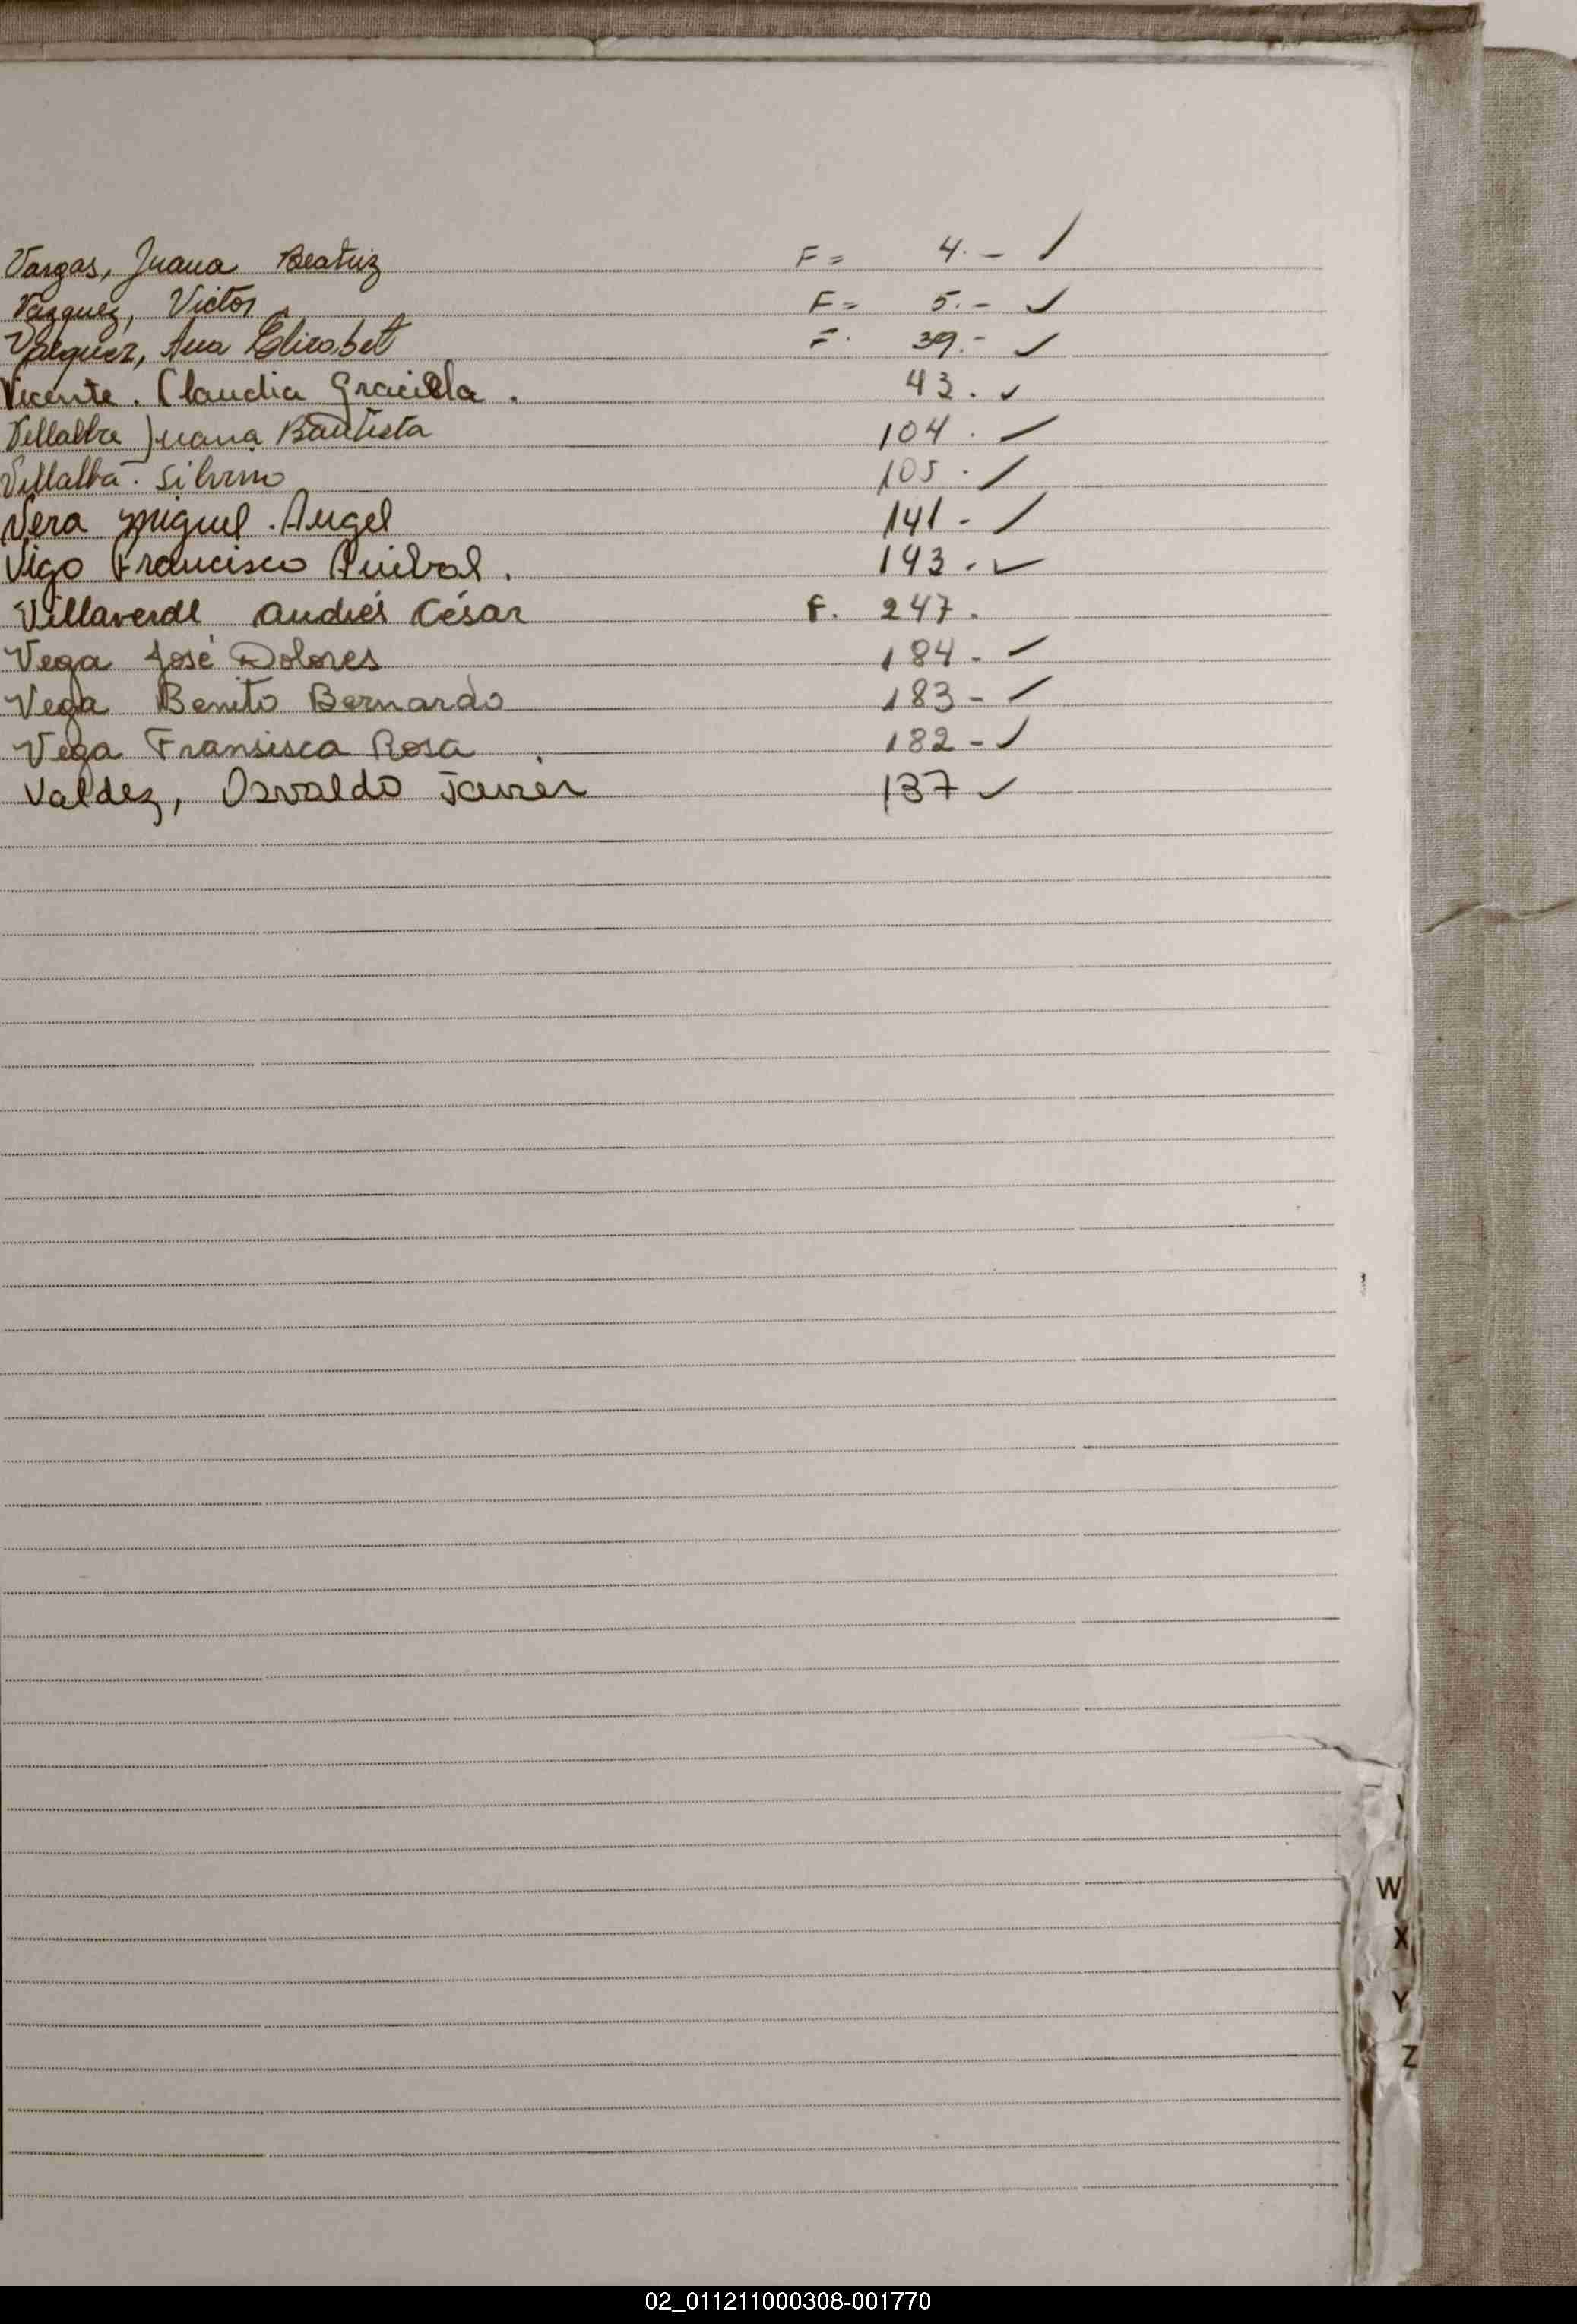 Vargas, Juana Beatriz F = 4.- ✓
Vazquez, Victor F = 5.- ✓
Vazquez, Ana Elizabet F. 39.- ✓
Vicente. Claudia Graciela. 43. ✓
Villalba Juana Bautista 104. ✓
Villalba. Silvino 105. ✓
Vera Miguel Angel 141 - ✓
Vigo Francisco Anibal. 143. ✓
Villaverde Andrés César F. 247.
Vega José Dolores 184. ✓
Vega Benito Bernardo 183 - ✓
Vega Fransisca Rosa. 182 - ✓
Valdez, Osvaldo Javier 137 ✓
W
X
Y
Z
02_011211000308-001770